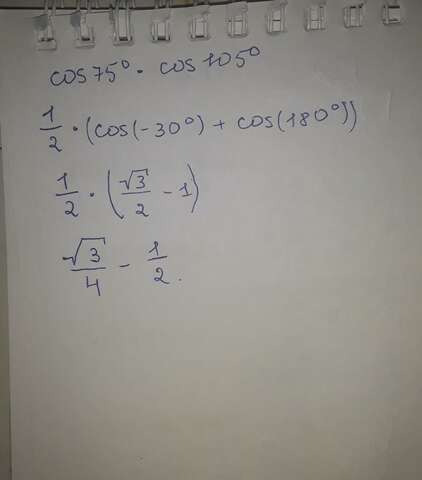 cos75° · cos105°
1/2 · (cos(-30°) + cos(180°))
1/2 · (√3/2 - 1)
√3/4 - 1/2.